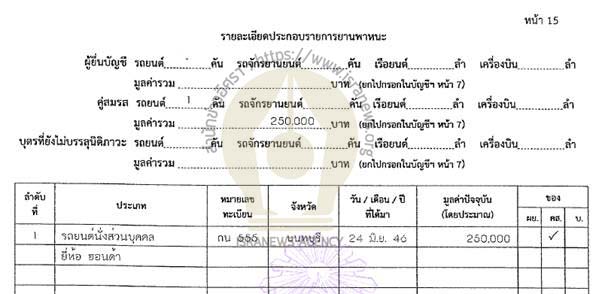 หน้า 15
รายละเอียดประกอบรายการยานพาหนะ
ผู้ยื่นบัญชี รถยนต์ - คัน รถจักรยานยนต์ คัน เรือยนต์ ลำ เครื่องบิน ลำ
มูลค่ารวม บาท (ยกไปกรอกในบัญชีฯ หน้า 7)
คู่สมรส รถยนต์ 1 คัน รถจักรยานยนต์ คัน เรือยนต์ ลำ เครื่องบิน ลำ
มูลค่ารวม 250,000 บาท (ยกไปกรอกในบัญชีฯ หน้า 7)
บุตรที่ยังไม่บรรลุนิติภาวะ รถยนต์ คัน รถจักรยานยนต์ คัน เรือยนต์ ลำ เครื่องบิน ลำ
มูลค่ารวม บาท (ยกไปกรอกในบัญชีฯ หน้า 7)
ลำดับที่ ประเภท หมายเลขทะเบียน จังหวัด วัน / เดือน / ปี ที่ได้มา มูลค่าปัจจุบัน (โดยประมาณ) ของ
ผย. คส. บ.
1 รถยนต์นั่งส่วนบุคคล 555 นนทบุรี 24 มิ.ย. 46 250,000 ✓
ยี่ห้อ ฮอนด้า
สำนักข่าวอิศรา https://www.isranews.org
ISRANEWS AGENCY